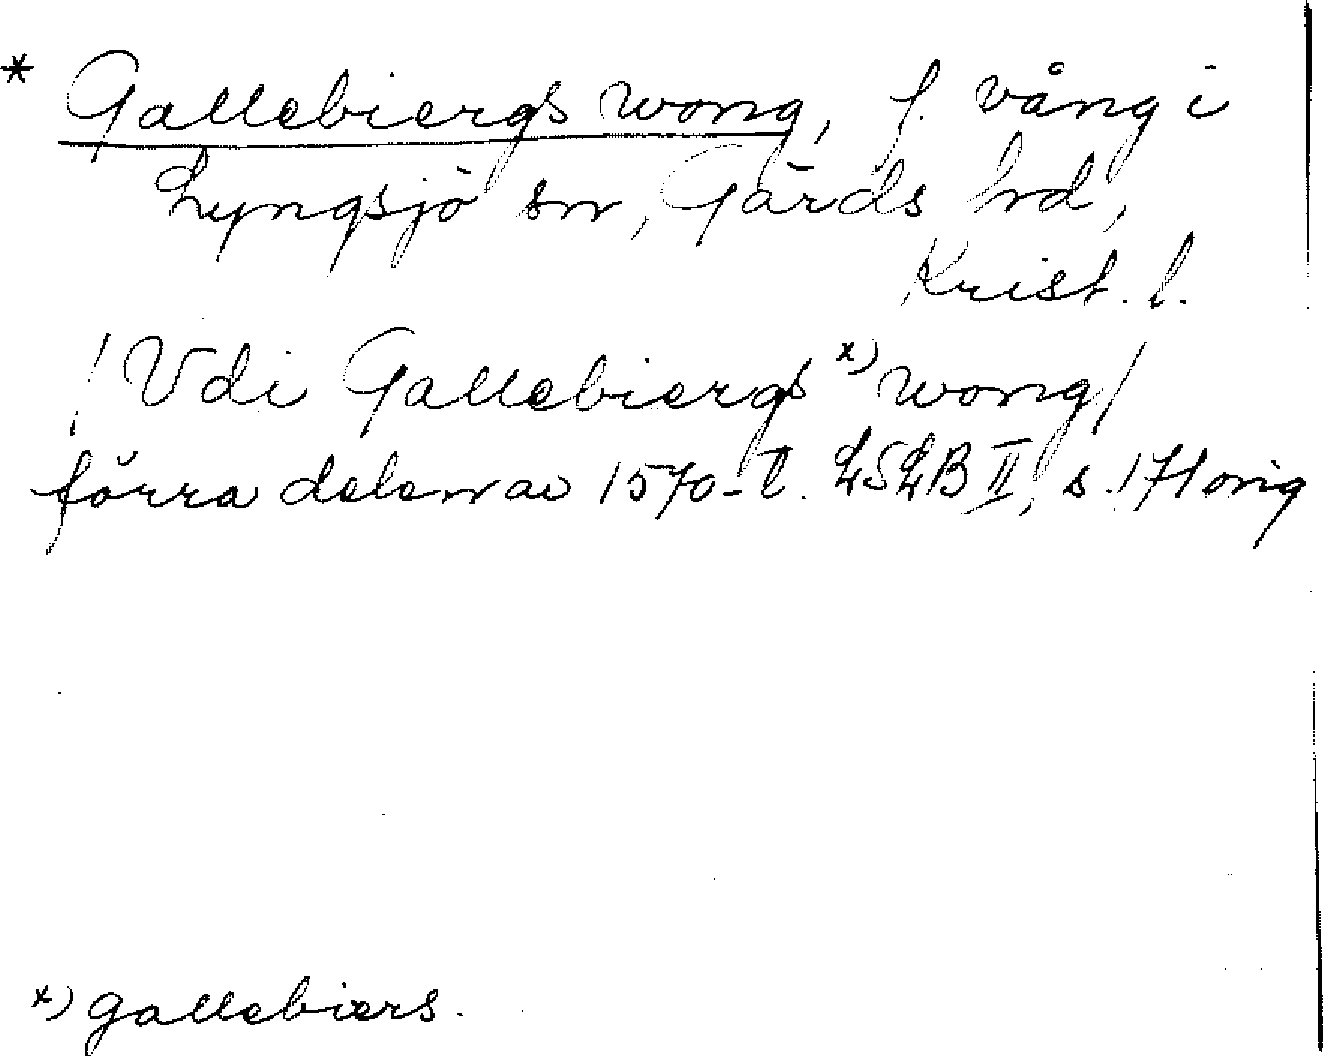 * Gallebiergs wong, f. vång i
Lyngsjö sn, Gärds hrd,
Krist. l.
/Vdi Gallebiergs x) wong/
förra delen av 1570-t. LSLB II, s. 171 orig
x) gallebiers.